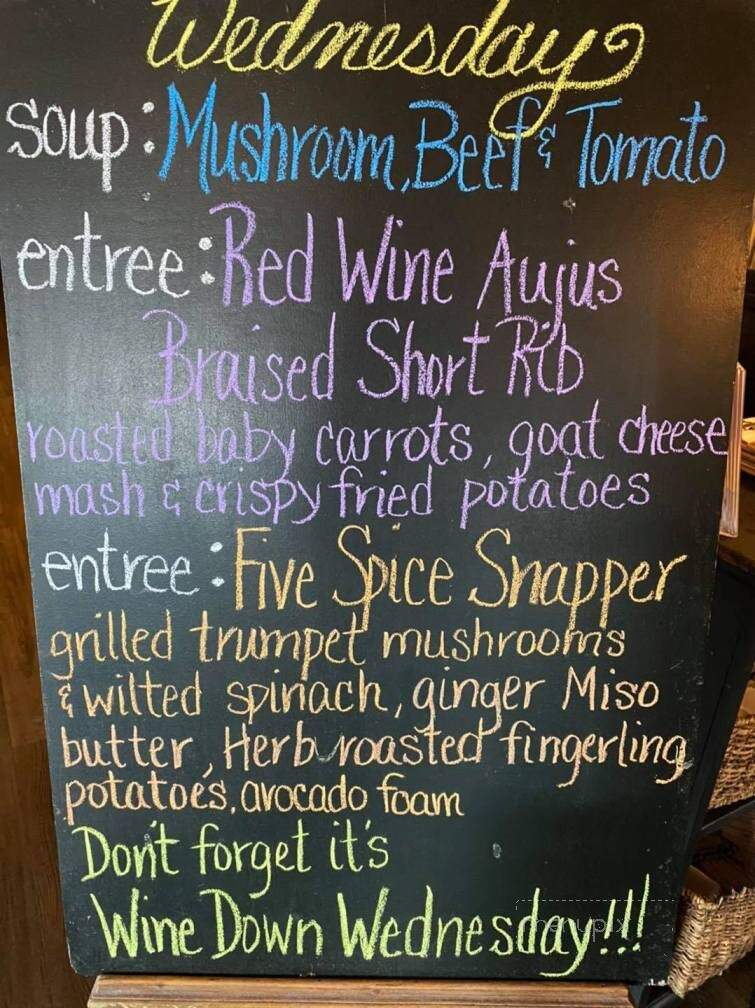 Wednesday
soup: Mushroom, Beef & Tomato
entree: Red Wine Aujus
Braised Short Rib
roasted baby carrots, goat cheese
mash & crispy fried potatoes
entree: Five Spice Snapper
grilled trumpet mushrooms
& wilted spinach, ginger Miso
butter, Herb roasted fingerling
potatoes, avocado foam
Don't forget it's
Wine Down Wednesday!!!
menupix